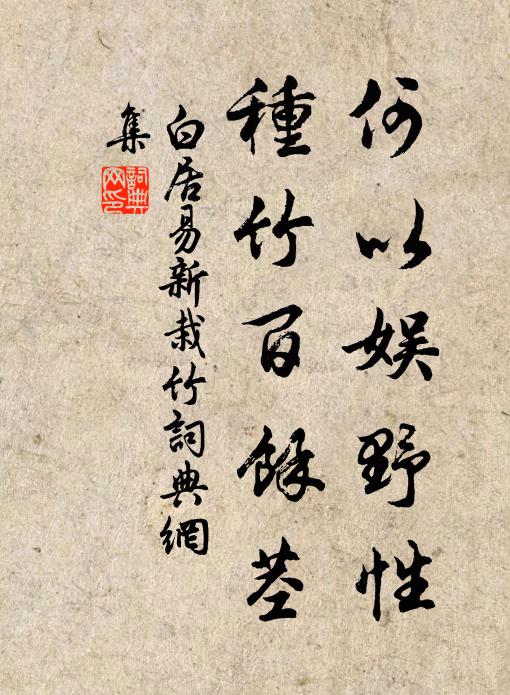 何以娱野性
種竹百餘莖
白居易新栽竹詞典網
集
詞典
网印